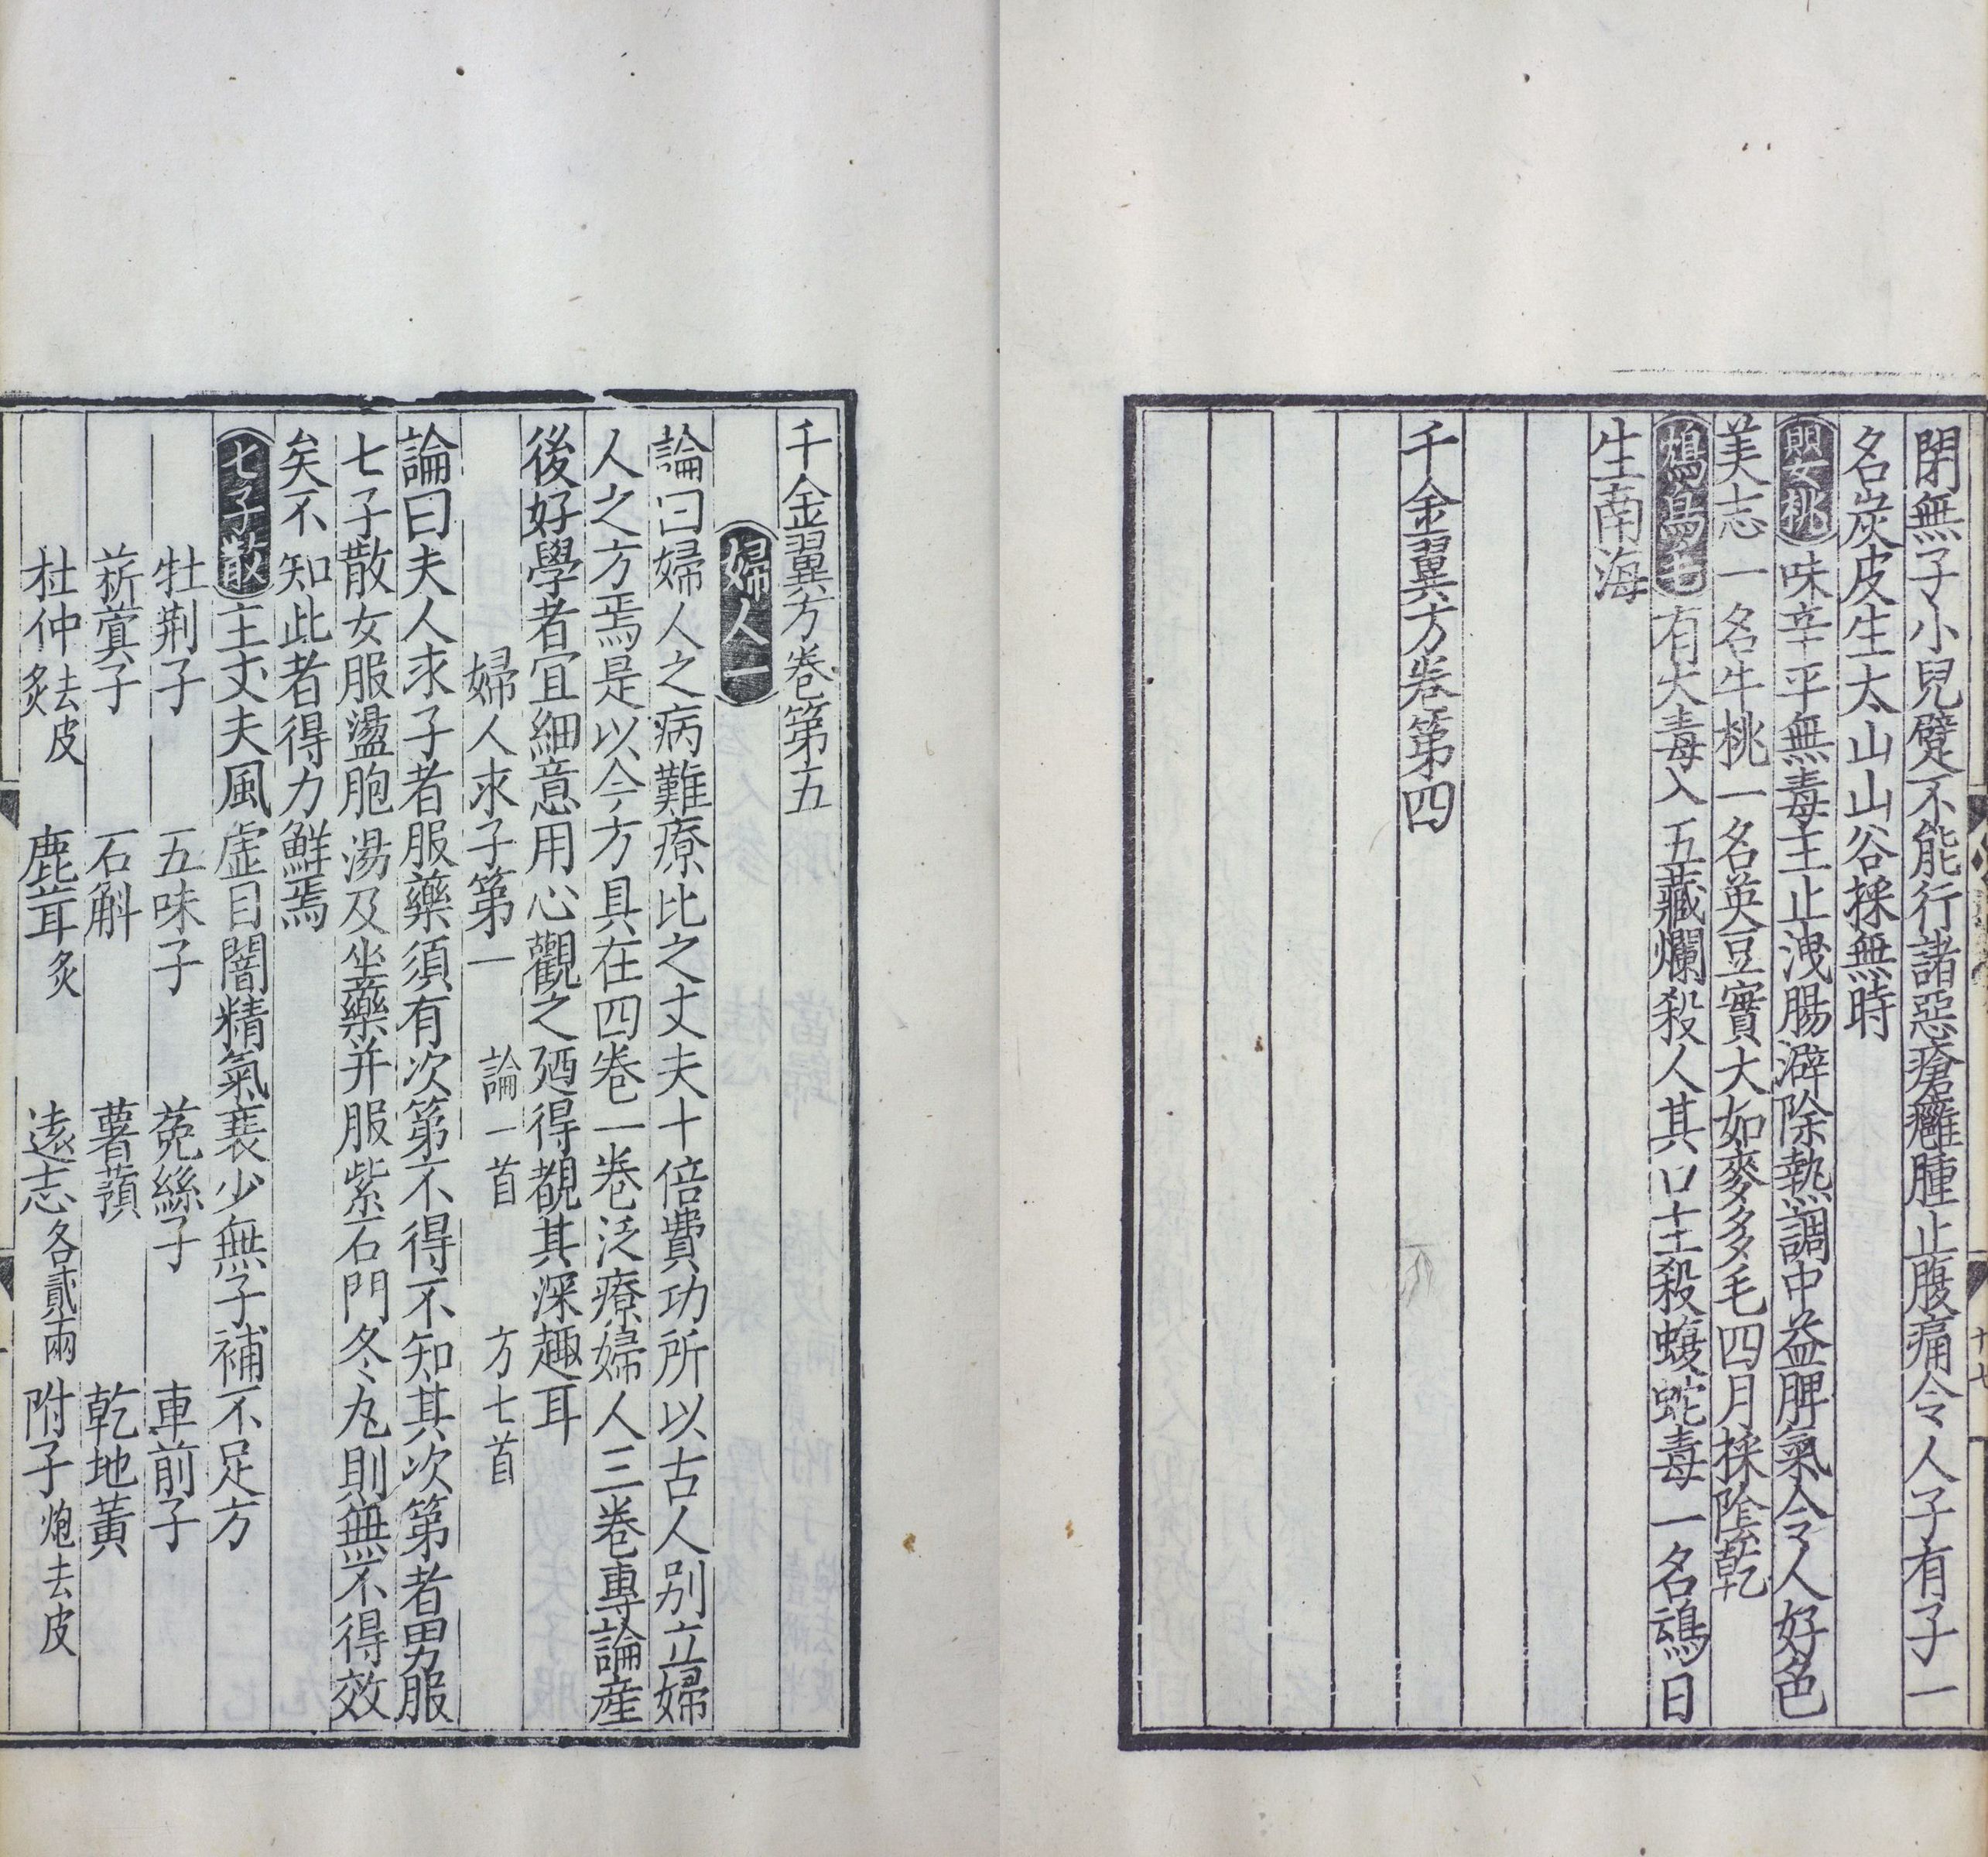 閉無子小兒躄不能行諸惡瘡癰腫止腹痛令人子有子一
名炭皮生太山山谷採無時
嬰桃味辛平無毒主止洩腸澼除熱調中益脾氣令人好色
美志一名牛桃一名英豆實大如麥多毛四月採陰乾
鴆鳥毛有大毒入五藏爛殺人其口主殺蝮蛇毒一名䲰日
生南海
千金翼方卷第四
十七
千金翼方卷第五
婦人一
論曰婦人之病難療比之丈夫十倍費功所以古人別立婦
人之方焉是以今方具在四卷一卷泛療婦人三卷專論產
後好學者宜細意用心觀之廼得覩其深趣耳
婦人求子第一 論一首 方七首
論曰夫人求子者服藥須有次第不得不知其次第者男服
七子散女服盪胞湯及坐藥并服紫石門冬丸則無不得效
矣不知此者得力鮮焉
七子散主丈夫風虛目闇精氣衰少無子補不足方
牡荊子 五味子 菟絲子 車前子
菥蓂子 石斛 薯蕷 乾地黃
杜仲去皮炙 鹿茸炙 遠志各貳兩 附子炮去皮